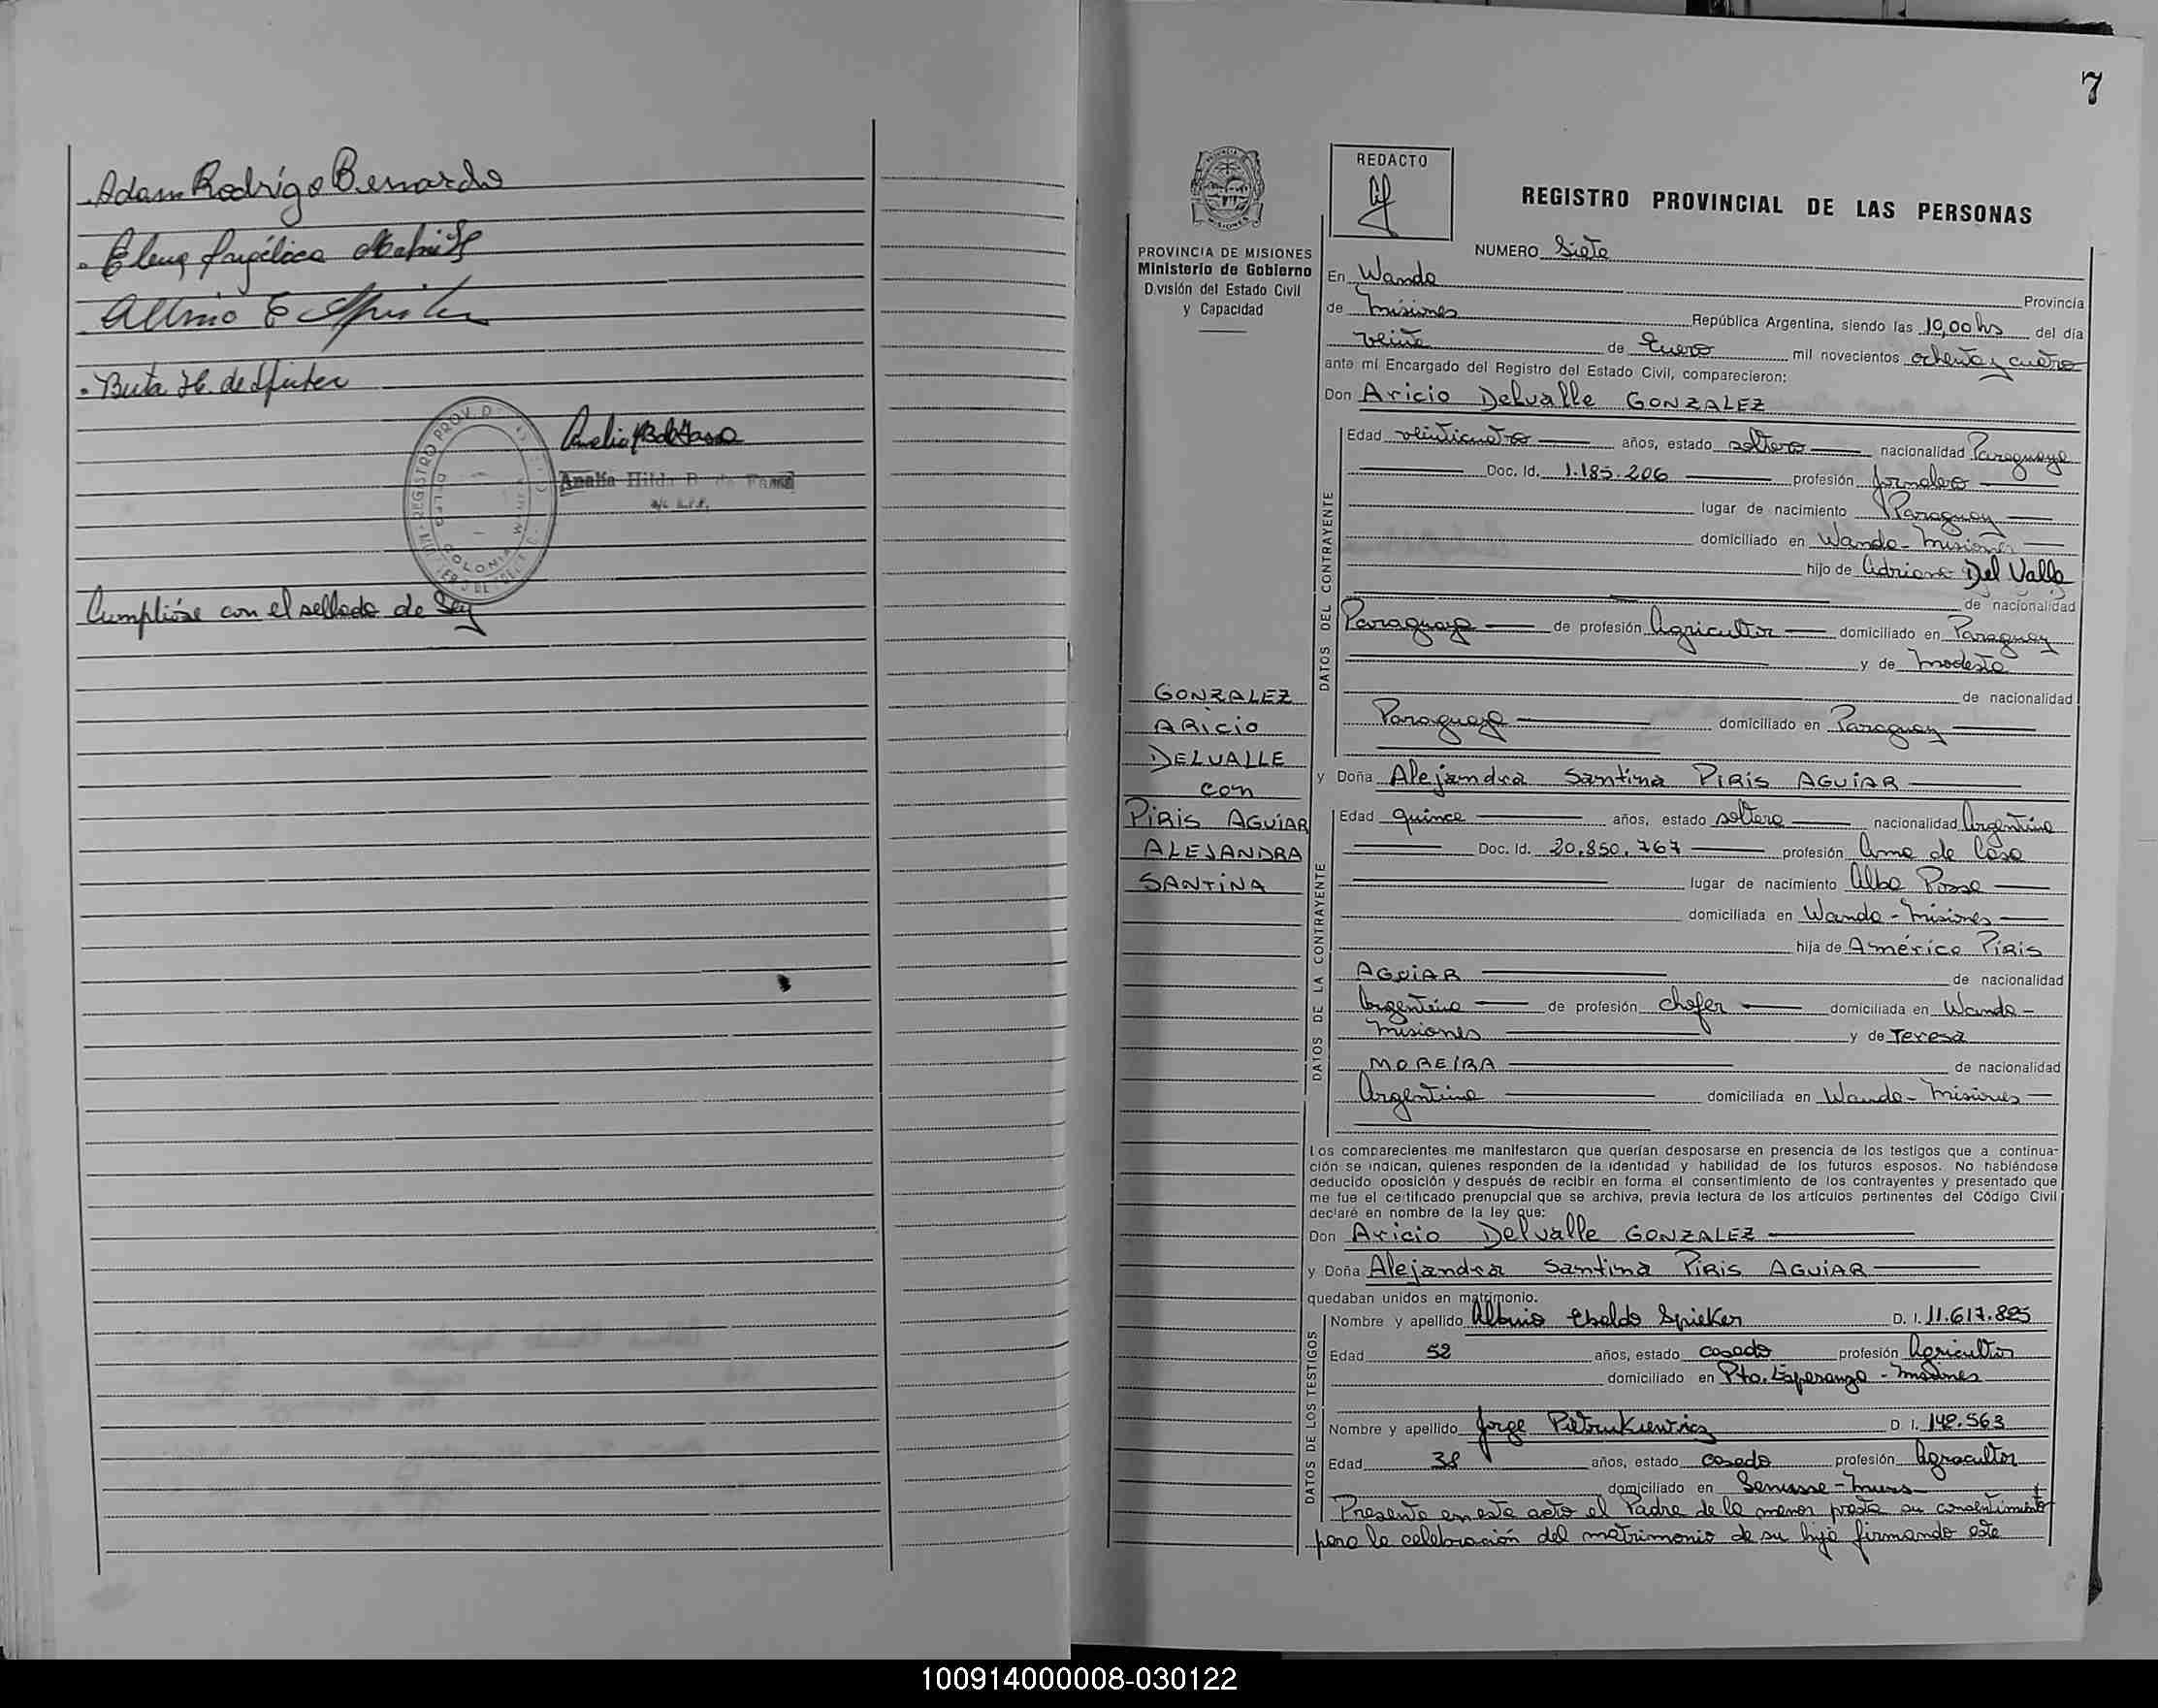 Adam Rodrigo Bernardo
Elena Angélica
Albino E Spieker
Berta H. de Spieker
REGISTRO PROV. D
COLONIA WANDA
Analía Hilda B. de
Cumplióse con el sellado de Ley
7
PROVINCIA DE MISIONES
Ministerio de Gobierno
División del Estado Civil
y Capacidad
GONZALEZ
ARICIO
DELVALLE
con
PIRIS AGUIAR
ALEJANDRA
SANTINA
REDACTO
REGISTRO PROVINCIAL DE LAS PERSONAS
NUMERO Siete
En Wanda Provincia
de Misiones República Argentina, siendo las 10,00 hs del día
veinte de Enero mil novecientos ochenta y cuatro
ante mi Encargado del Registro del Estado Civil, comparecieron:
Don Aricio Delvalle GONZALEZ
DATOS DEL CONTRAYENTE
Edad veinticuatro años, estado soltero nacionalidad Paraguaya
Doc. Id. 1.185.206 profesión Jornalero
lugar de nacimiento Paraguay
domiciliado en Wanda - Misiones
hijo de Adriano Del Valle
de nacionalidad
Paraguaya de profesión Agricultor domiciliado en Paraguay
y de Modesta
de nacionalidad
Paraguaya domiciliado en Paraguay
y Doña Alejandra Santina PIRIS AGUIAR
DATOS DE LA CONTRAYENTE
Edad quince años, estado soltera nacionalidad Argentina
Doc. Id. 20.850.767 profesión Ama de Casa
lugar de nacimiento Alba Posse
domiciliada en Wanda - Misiones
hija de Américo PIRIS
AGUIAR de nacionalidad
Argentina de profesión chofer domiciliada en Wanda -
Misiones y de Teresa
MOREIRA de nacionalidad
Argentina domiciliada en Wanda - Misiones
Los comparecientes me manifestaron que querían desposarse en presencia de los testigos que a continua-
ción se indican, quienes responden de la identidad y habilidad de los futuros esposos. No habiéndose
deducido oposición y después de recibir en forma el consentimiento de los contrayentes y presentado que
me fue el certificado prenupcial que se archiva, previa lectura de los artículos pertinentes del Código Civil
declaré en nombre de la ley que:
Don Aricio Delvalle GONZALEZ
y Doña Alejandra Santina PIRIS AGUIAR
quedaban unidos en matrimonio.
DATOS DE LOS TESTIGOS
Nombre y apellido Albino Ebaldo Spieker D. I. 11.617.825
Edad 52 años, estado casado profesión Agricultor
domiciliado en Pto. Esperanza - Misiones
Nombre y apellido Jorge Pietrukiewicz D I. 142.563
Edad 38 años, estado casado profesión Agricultor
domiciliado en
Presente en este acto el Padre de la menor presta su consentimiento
para la celebración del matrimonio de su hija firmando este
100914000008-030122